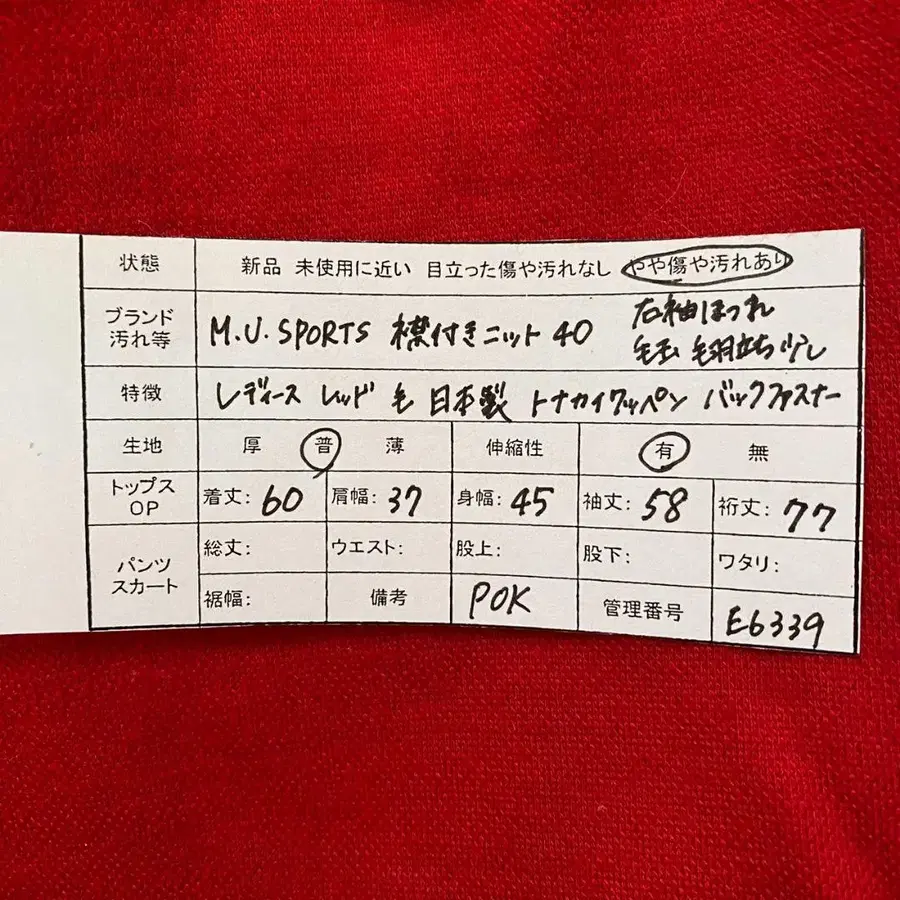 状態 新品 未使用に近い 目立った傷や汚れなし やや傷や汚れあり
ブランド 汚れ等 M.U. SPORTS 襟付きニット 40 右袖ほつれ
毛玉 毛羽立ち少し
特徴 レディース レッド 毛 日本製 トナカイワッペン バックファスナー
生地 厚 普 薄 伸縮性 有 無
トップス OP 着丈: 60 肩幅: 37 身幅: 45 袖丈: 58 裄丈: 77
パンツ スカート 総丈: ウエスト: 股上: 股下: ワタリ:
裾幅: 備考 POK 管理番号 E6339